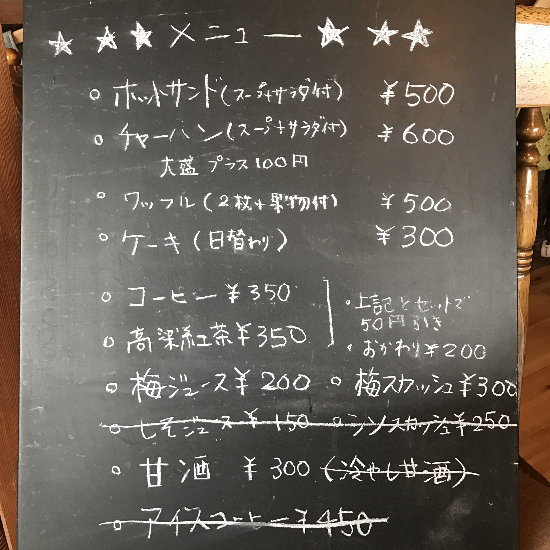 ☆ ☆ ★ メニュー ★ ☆ ★
○ ホットサンド(スープ+サラダ付) ¥500
○ チャーハン(スープ+サラダ付) ¥600
大盛 プラス100円
○ ワッフル(2枚+果物付) ¥500
○ ケーキ(日替わり) ¥300
○ コーヒー ¥350
○ 高深紅茶 ¥350
・上記とセットで
50円引き
・おかわり ¥200
○ 梅ジュース ¥200 ○ 梅スカッシュ ¥300
○ しそジュース ¥150 ○ シソスカッシュ ¥250
○ 甘酒 ¥300 (冷やし甘酒)
○ アイスコーヒー ¥450